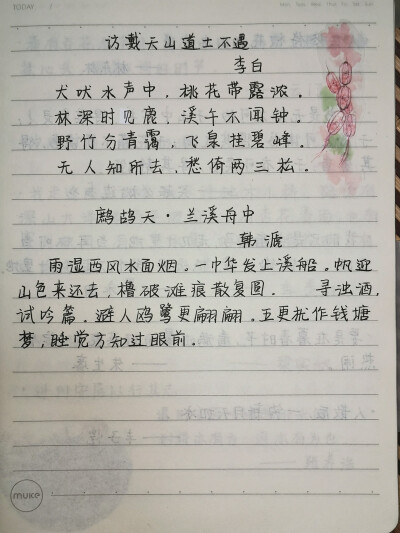 TODAY
访戴天山道士不遇
李白
犬吠水声中，桃花带露浓。
林深时见鹿，溪午不闻钟。
野竹分青霭，飞泉挂碧峰。
无人知所去，愁倚两三松。
鹧鸪天·兰溪舟中
韩淲
雨湿西风水面烟。一巾华发上溪船。帆迎
山色来还去，橹破滩痕散复圆。 寻浊酒，
试吟篇。避人鸥鹭更翩翩。五更犹作钱塘
梦，睡觉方知过眼前。
muke